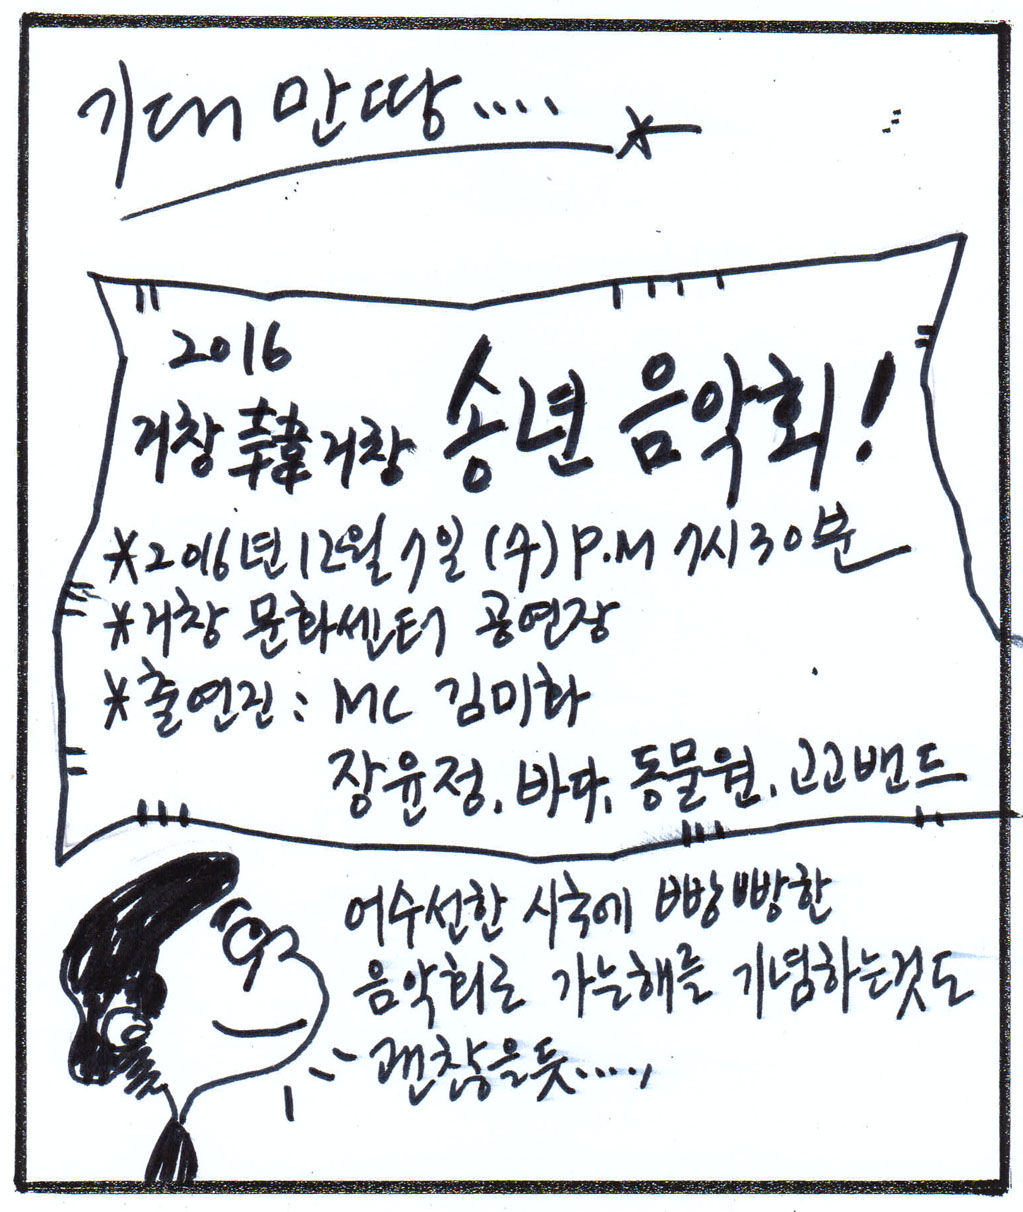 기대 만땅....
2016
거창 韓거창 송년 음악회!
*2016년 12월 7일 (수) P.M 7시 30분
*거창 문화센터 공연장
*출연진 : MC 김미화
장윤정, 바다, 동물원, 고고밴드
어수선한 시국에 빵빵한
음악회로 가는해를 기념하는것도
괜찮을듯....,